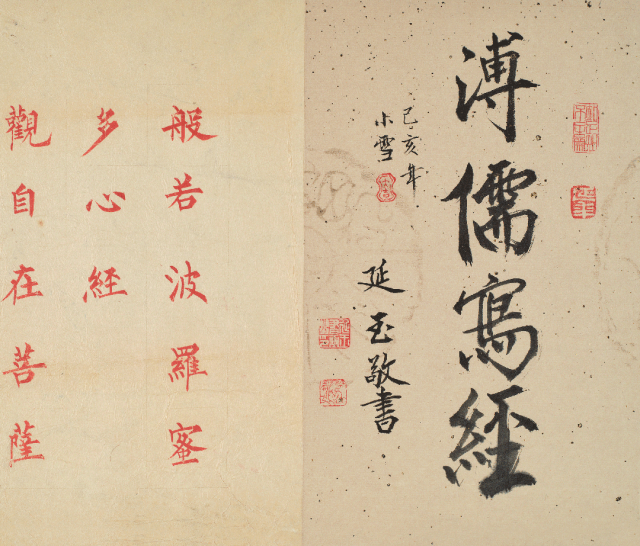 溥儒寫經
己亥年
小雪
延玉敬書
般若波羅蜜
多心經
觀自在菩薩